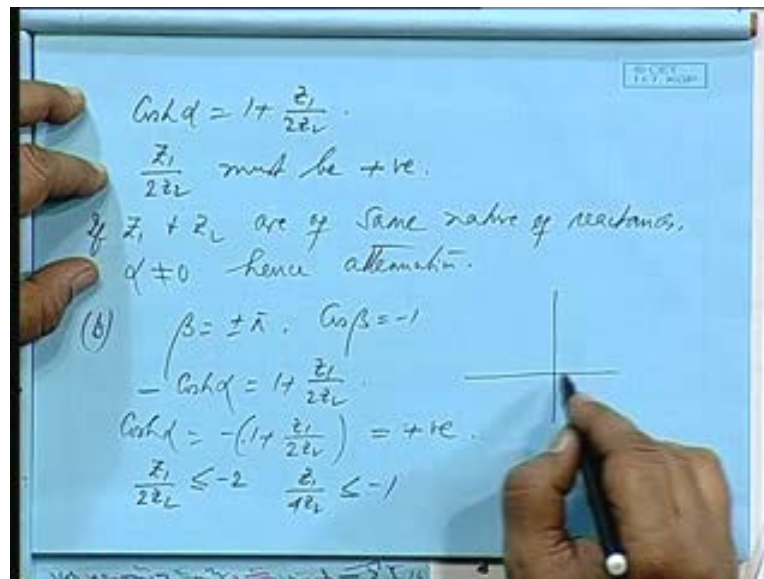 © CET
I.I.T. KGP
Cosh α = 1 + Z₁/2Z₂ .
Z₁/2Z₂ must be +ve.
If Z₁ & Z₂ are of same nature of reactances,
α ≠ 0 hence attenuation.
(b) β = ± π . Cos β = -1
- Cosh α = 1 + Z₁/2Z₂ .
Cosh α = -(1 + Z₁/2Z₂) = +ve .
Z₁/2Z₂ ≤ -2 Z₁/4Z₂ ≤ -1